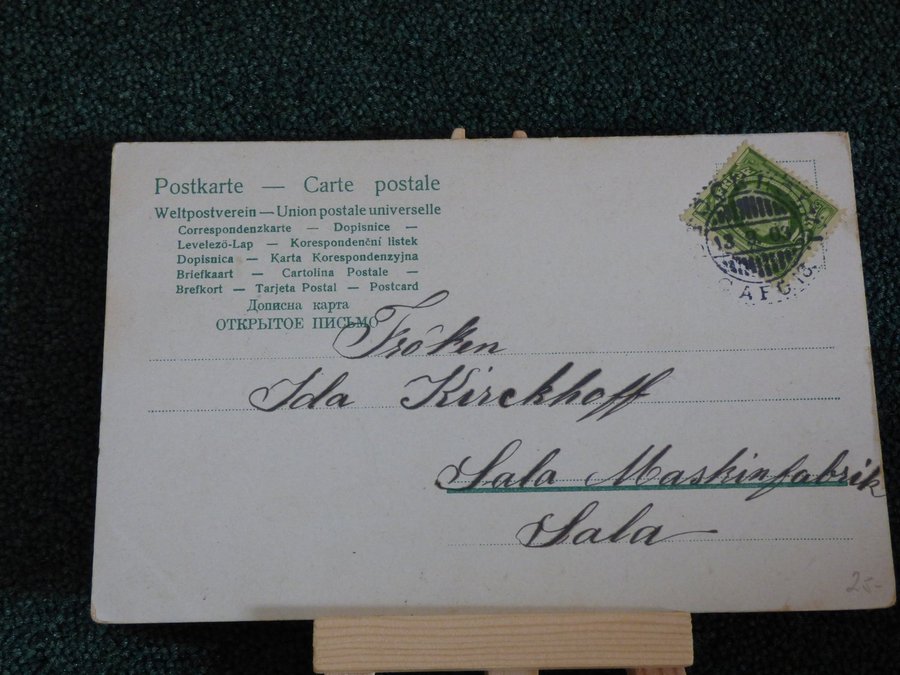 Postkarte — Carte postale
Weltpostverein — Union postale universelle
Correspondenzkarte — Dopisnice —
Levelező-Lap — Korespondenční listek
Dopisnica — Karta Korespondenzyjna
Briefkaart — Cartolina Postale —
Brefkort — Tarjeta Postal — Postcard
Дописна карта
ОТКРЫТОЕ ПИСЬМО
Fröken
Ida Kirckhoff
Sala Maskinfabrik
Sala
25-